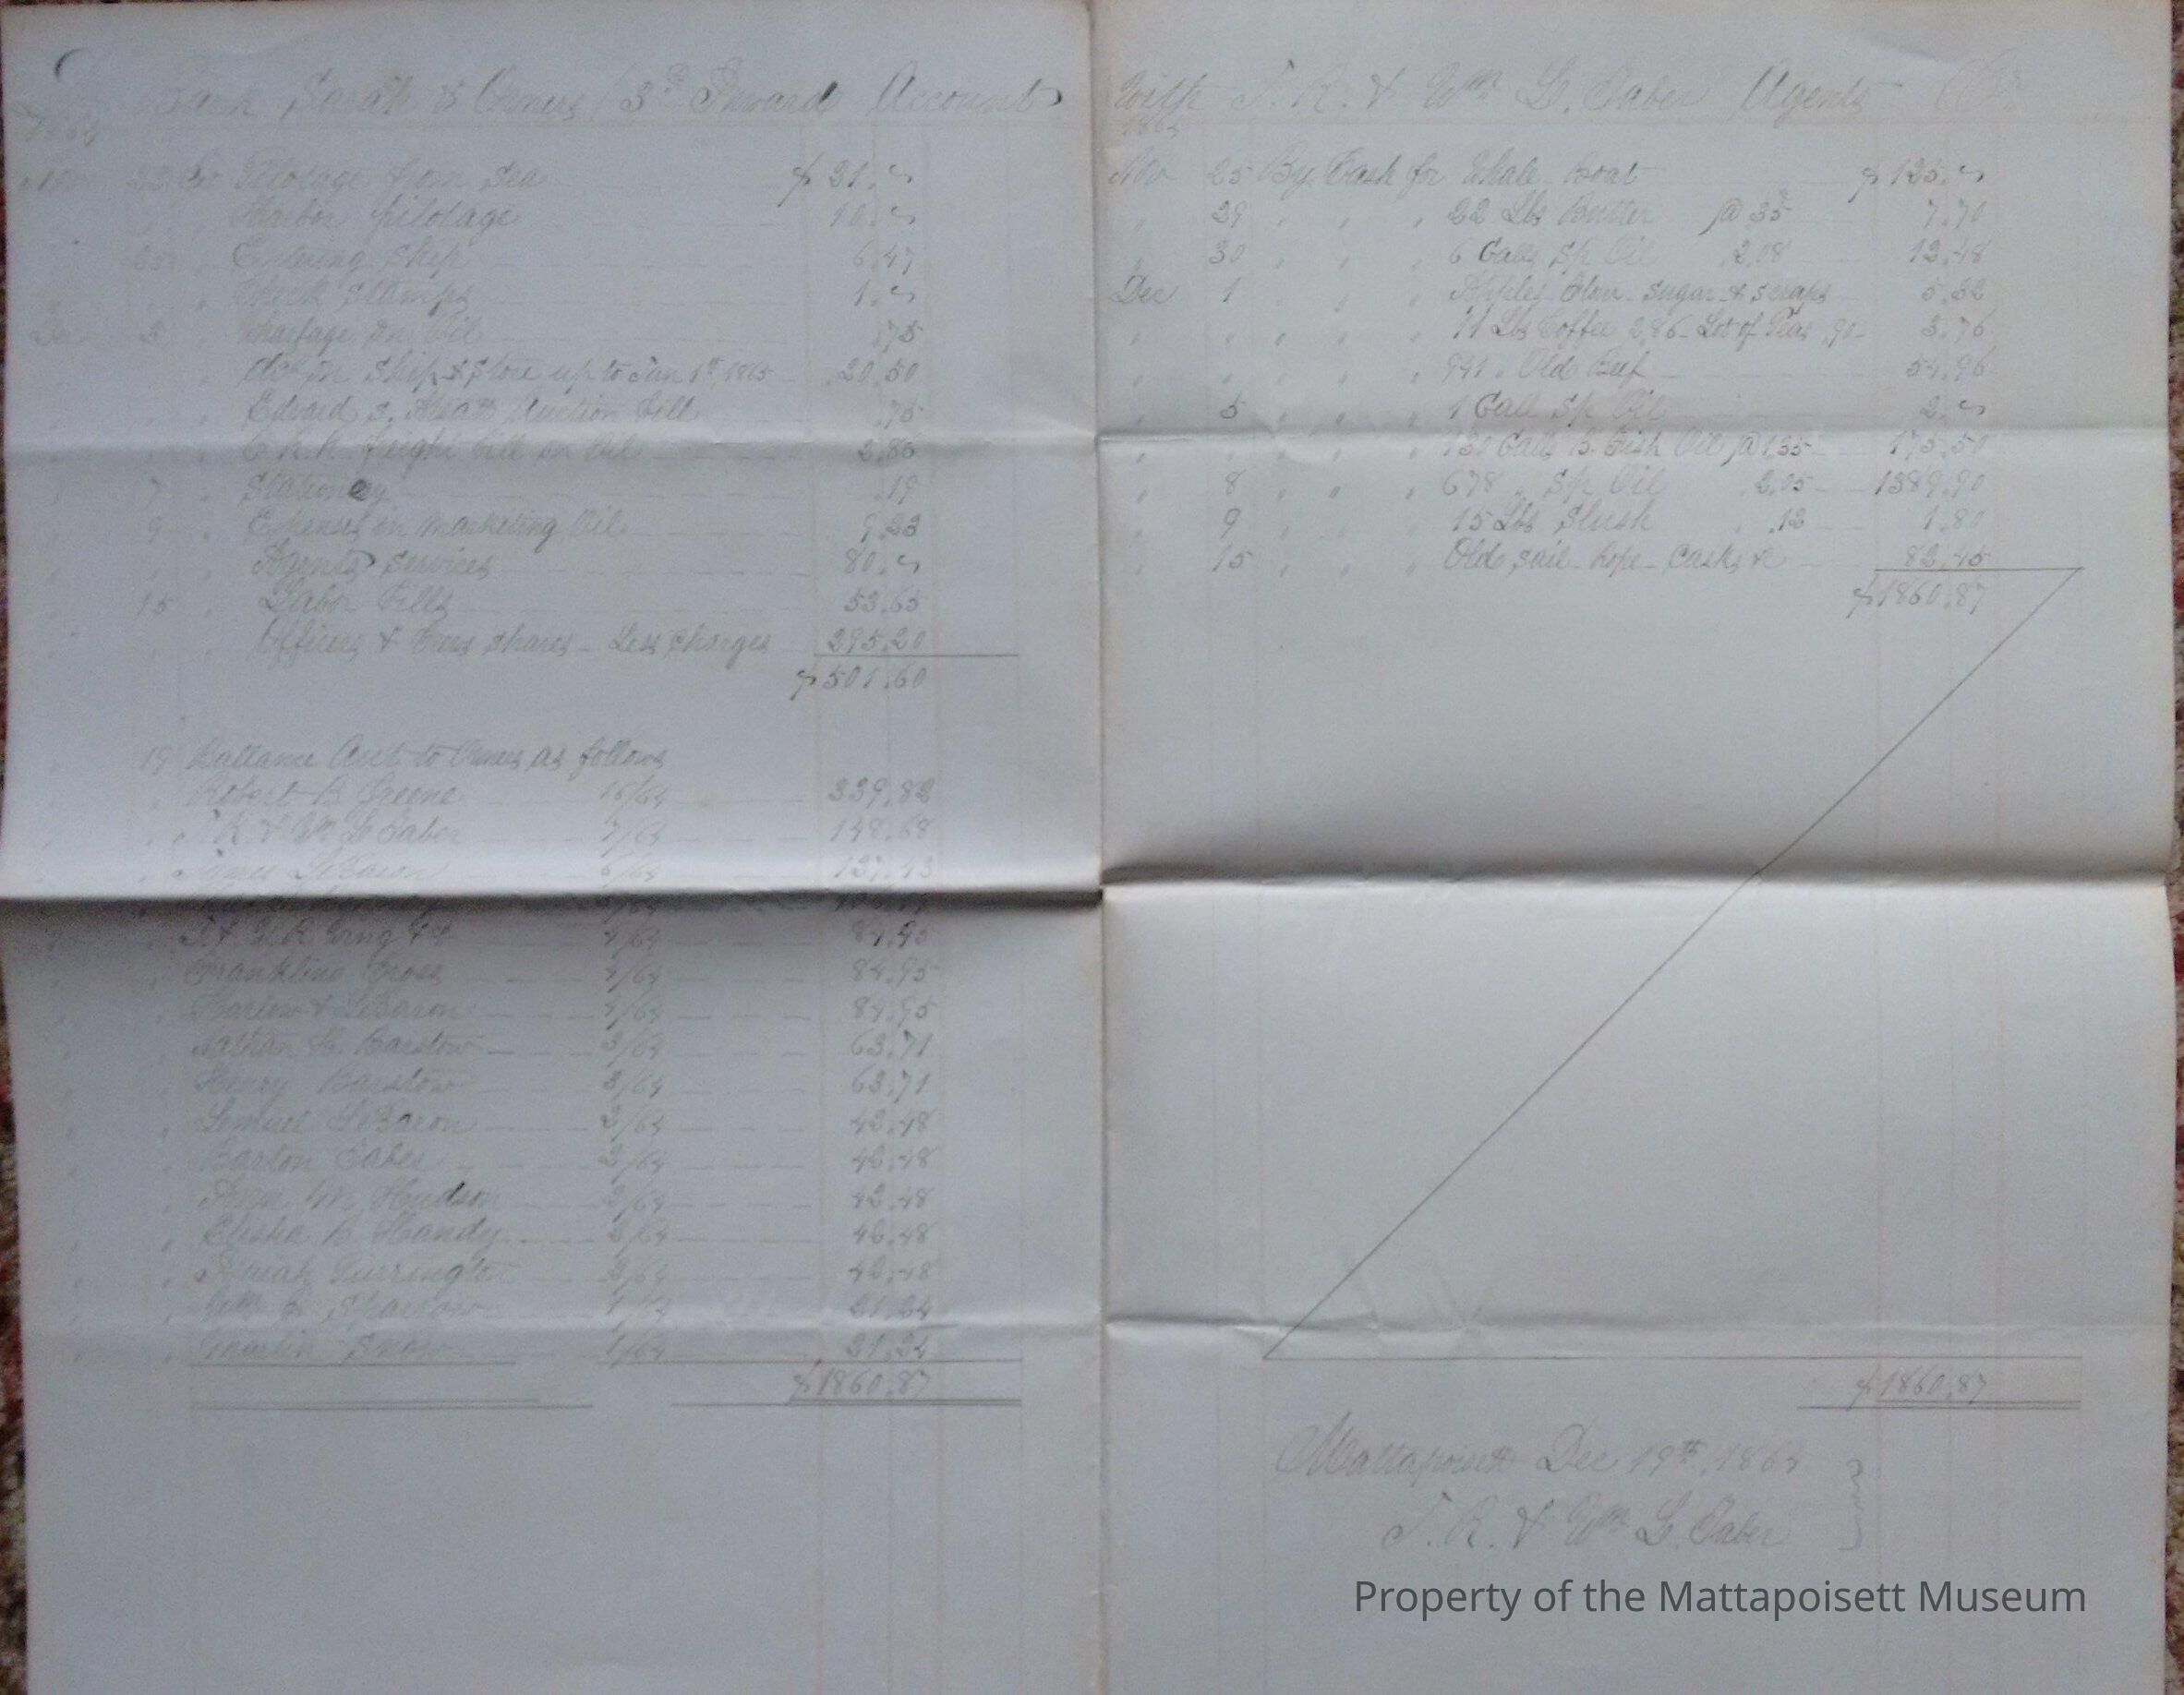 Bark Sarah & Owners / 3d Inward Account
1864
Nov 23 To Pilotage from Sea $21."
" " " Harbor pilotage 10."
" 25 " Entering Ship 6.47
" " " Check Stamps 1."
Dec 3 " Wharfage on Oil .75
" " " on Ship & Store up to Jan 1st, 1865 20.50
" " " Edward S. Auction bill .75
" " " freight bill on Oil 2.86
" 7 " Stationery .19
" 9 " Expenses in marketing Oil 9.23
" " " Agents services 80."
" 15 " Labor Bills 53.65
" " " Officers & Crews shares - Less charges 295.20
$501.60
" 19 Ballance Due to Owners as follows
" " Robert B Greene 16/64 339.82
" " J. R. & Wm L Taber 7/64 148.68
" " James LeBaron 6/64 127.43
" " 84.95
" " Franklin Cross 4/64 84.95
" " Barlow & LeBaron 4/64 84.95
" " Nathan H. Barstow 3/64 63.71
" " Henry Barstow 3/64 63.71
" " Lemuel LeBaron 2/64 42.48
" " Barton Taber 2/64 42.48
" " Ann M Hudson 2/64 42.48
" " Elisha B Handy 2/64 42.48
" " Isaiah Purrington 2/64 42.48
" " Wm E Sparrow 1/64 21.24
" " Snow 1/64 21.24
$1860.87
With J. R. & Wm L. Taber Agents Cr.
1864
Nov 25 By Cash for Whale Boat $125."
" 29 " " " 22 Lbs Butter @ 35 7.70
" 30 " " " 6 Galls Sp Oil 2.08 12.48
Dec 1 " " " Apples Flour Sugar & scraps 5.32
" " " " " 11 Lbs Coffee 2.86 - Lot of Peas .90 - 3.76
" " " " " 941 " Old Beef 54.96
" 5 " " " 1 Gall Sp Oil 2."
" " " " " 130 Galls B. Fish Oil @ 1.35 175.50
" 8 " " " 678 " Sp Oil 2.05 1389.90
" 9 " " " 15 Lbs Slush .12 1.80
" 15 " " " Old sail - Rope - Casks &c 82.45
$1860.87
$1860.87
Mattapoisett Dec 19th, 1864
J. R. & Wm L. Taber
Property of the Mattapoisett Museum